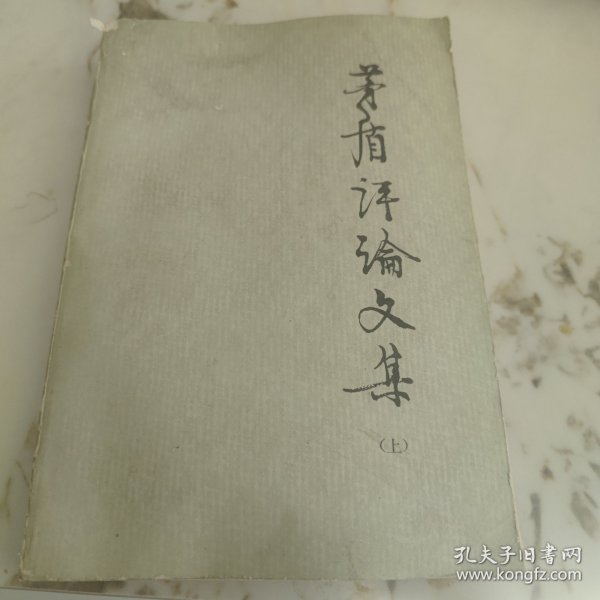 茅盾评論文集
（上）
孔夫子旧書网
www.kongfz.com